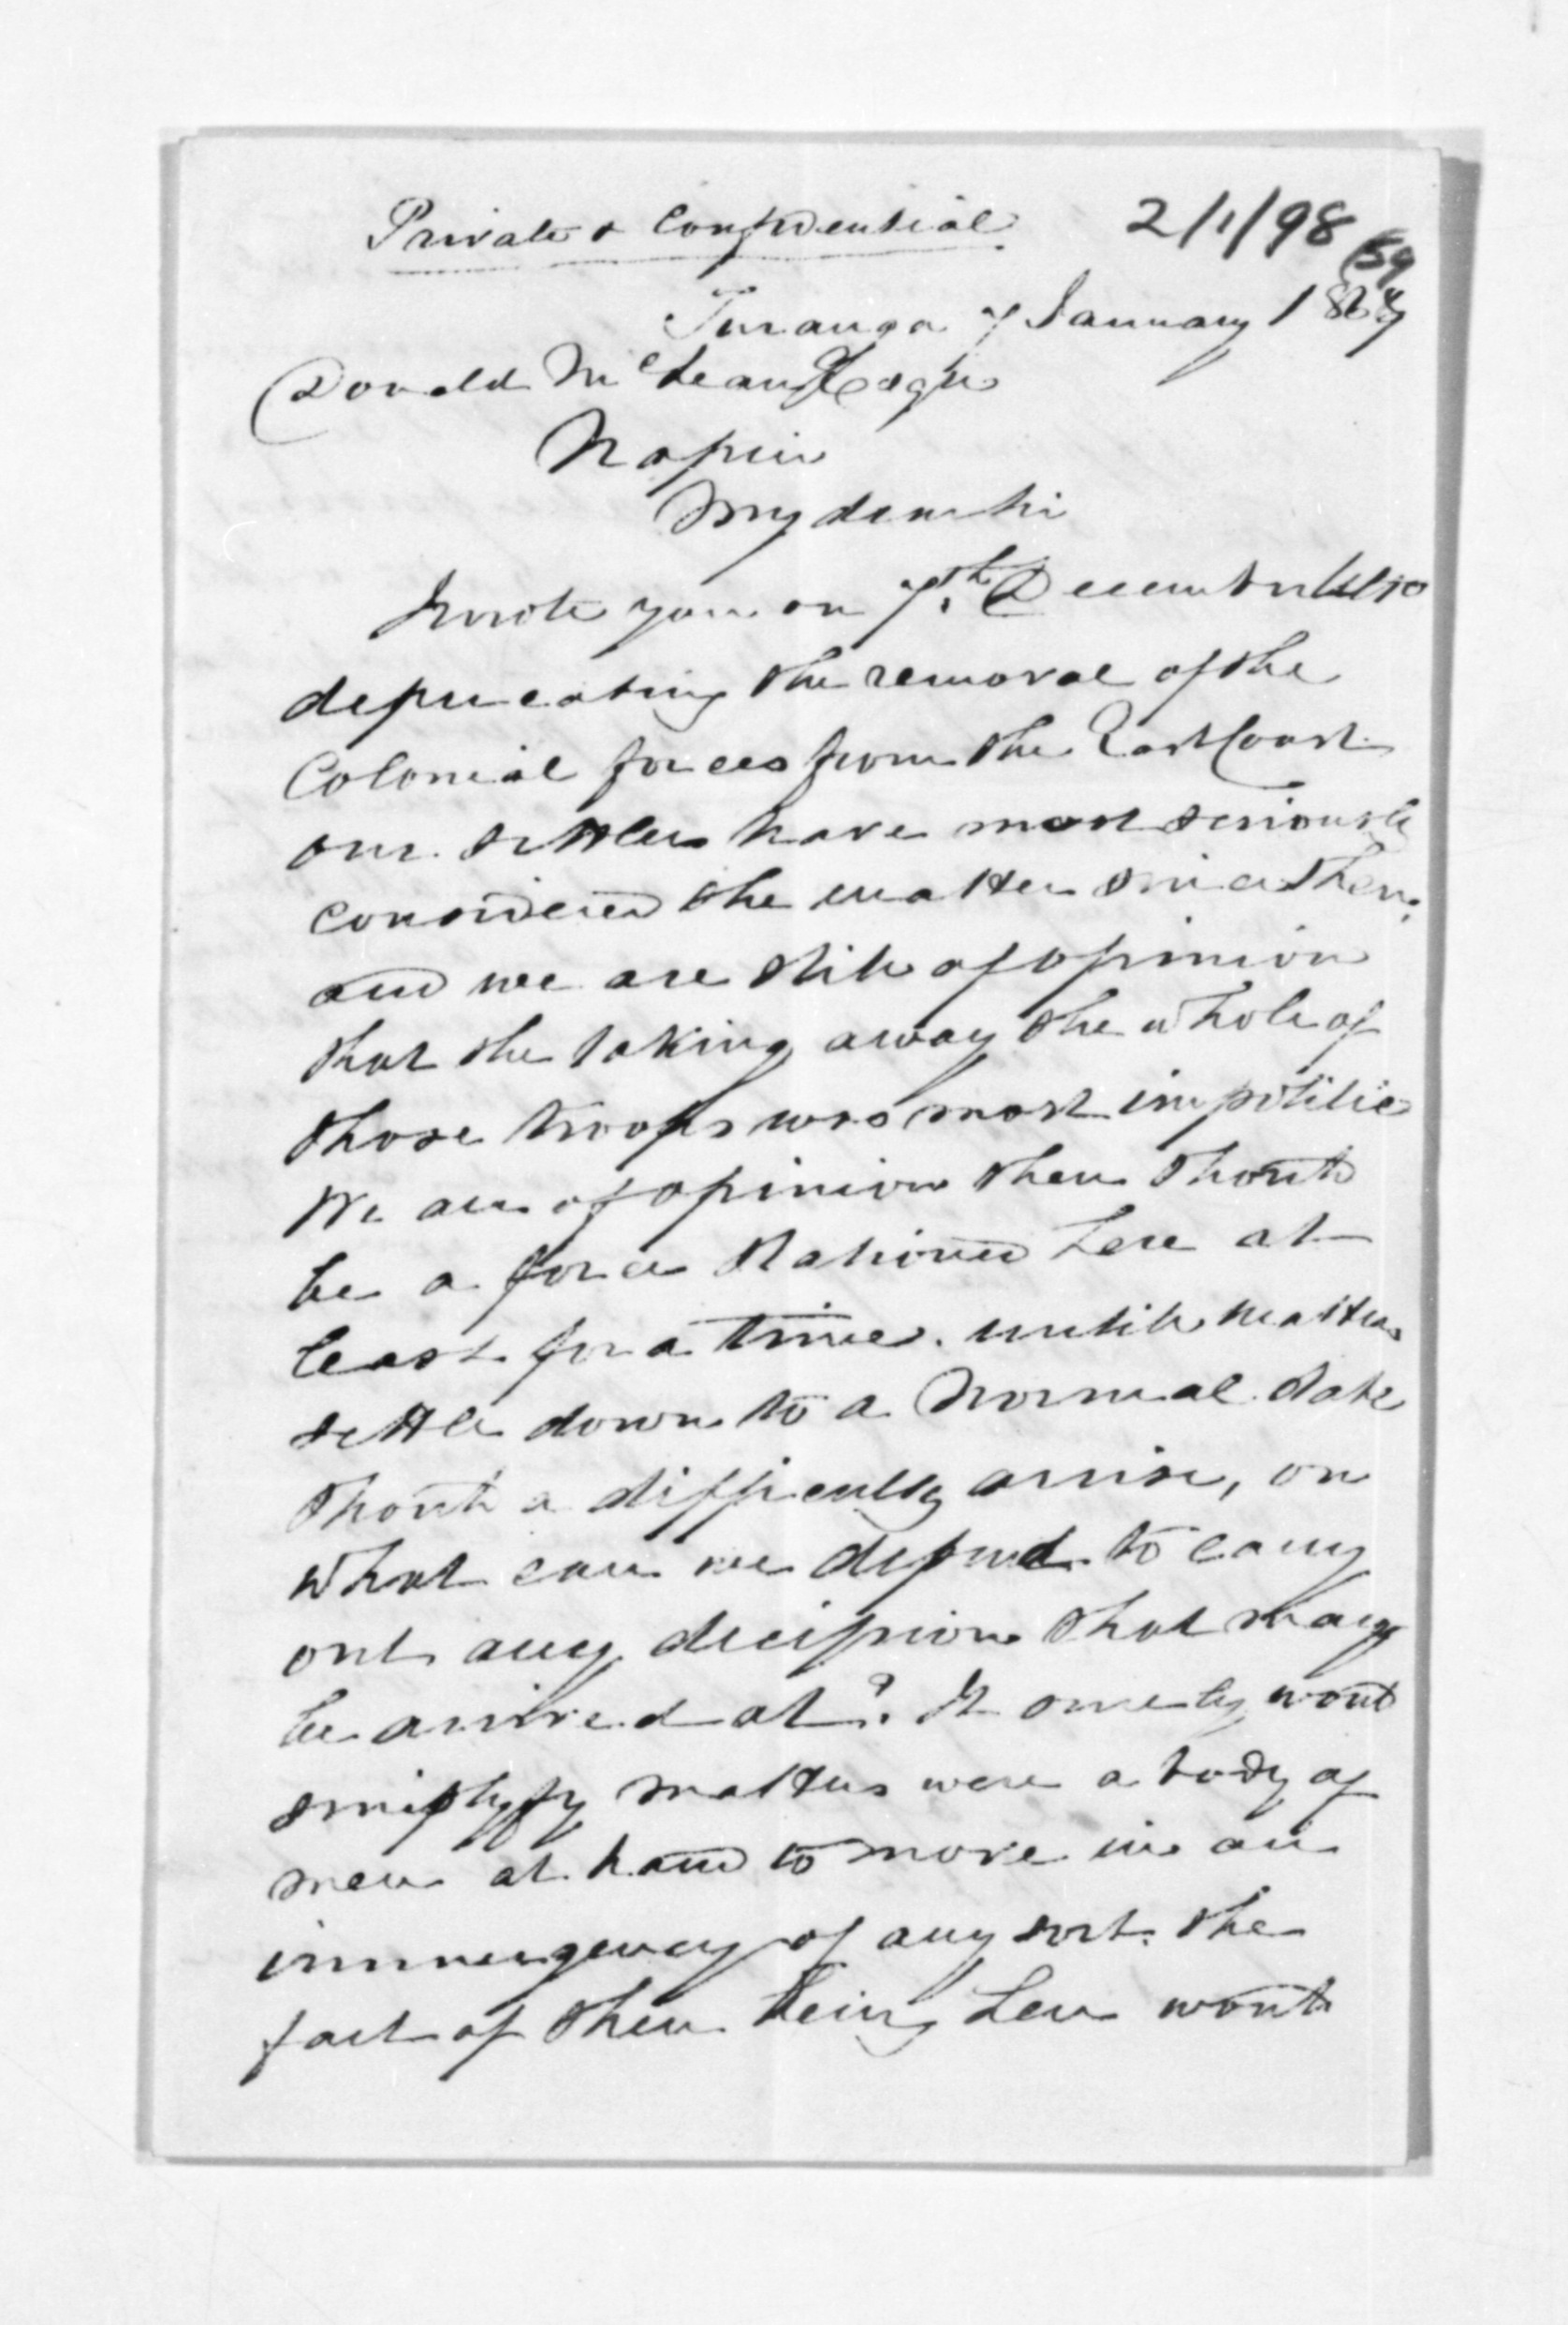 Private & Confidential
2/1/98
Turanga 7 January 1867
Donald McLean Esqre
Napier
My dear Sir
I wrote you on 7th December
deprecating the removal of the
Colonial forces from the East Coast
our settlers have most seriously
considered the matter since then,
and we are still of opinion
that the taking away the whole of
those troops was most impolitic
We are of opinion there should
be a force stationed here at
least for a time. untill matters
settle down to a Normal state
should a difficulty arrise, on
what can we depend to carry
out any decission that may
be arrived at? It surely would
simplyfy matters were a body of
men at hand to move in an
immergency of any sort. the
fact of their being here would